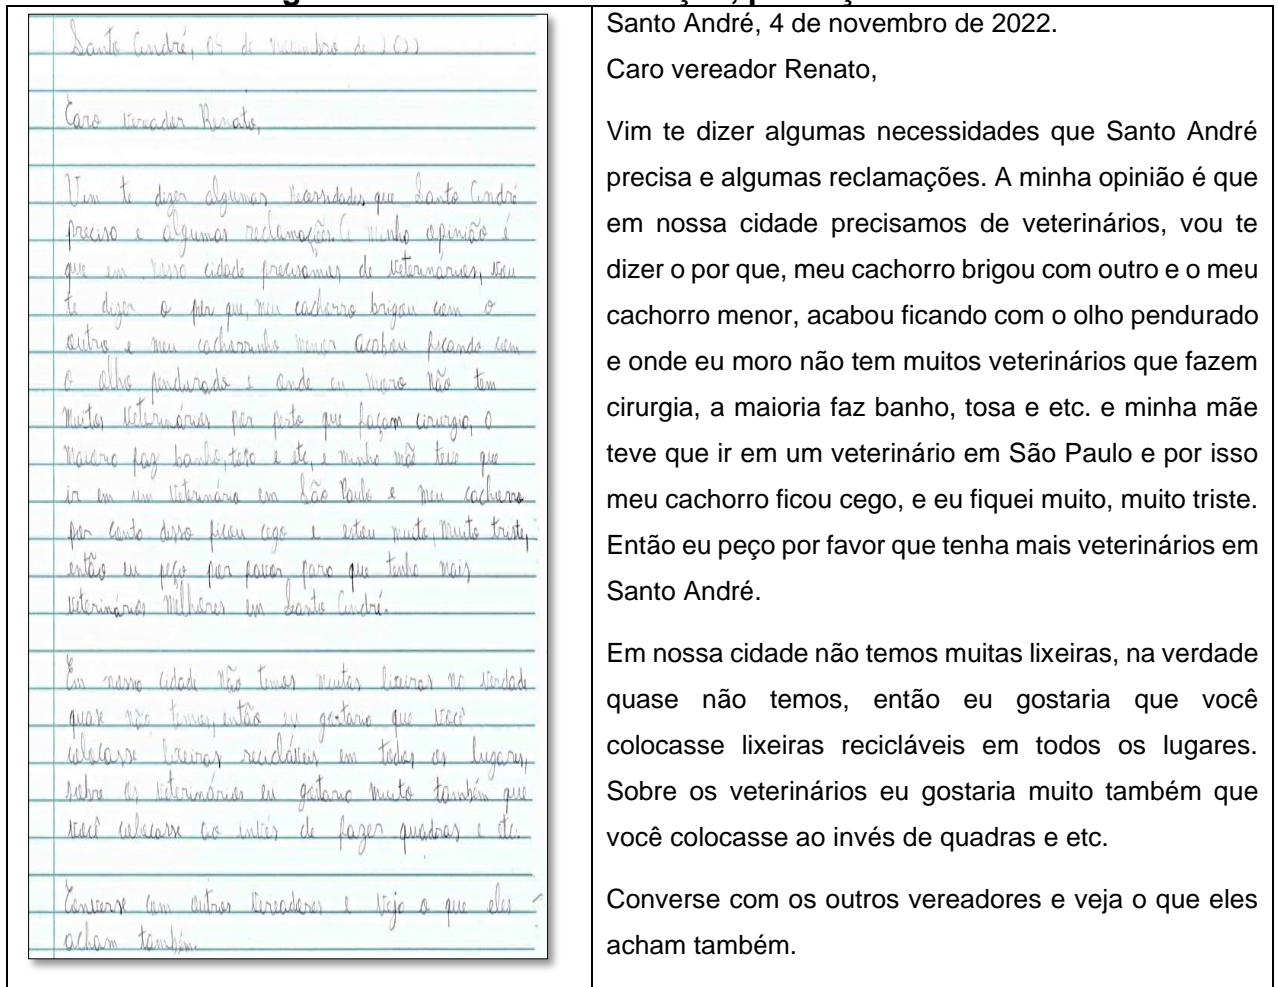 Santo André, 04 de novembro de 2022
Caro vereador Renato,
Vim te dizer algumas necessidades que Santo André
preciso e algumas reclamações. A minha opinião é
que em nossa cidade precisamos de veterinários, vou
te dizer o por que, meu cachorro brigou com o
outro e meu cachorrinho menor acabou ficando com
o olho pendurado e onde eu moro não tem
muitos veterinários por perto que façam cirurgia, a
maioria faz banho, tosa e etc, e minha mãe teve que
ir em um veterinário em São Paulo e meu cachorro
por conta disso ficou cego e estou muito, muito triste,
então eu peço por favor para que tenha mais
veterinários melhores em Santo André.
Em nossa cidade não temos muitas lixeiras na verdade
quase não temos, então eu gostaria que você
colocasse lixeiras recicláveis em todos os lugares,
sobre os veterinários eu gostaria muito também que
você colocasse ao invés de fazer quadras e etc.
Converse com outros vereadores e veja o que eles
acham também.
Santo André, 4 de novembro de 2022.
Caro vereador Renato,
Vim te dizer algumas necessidades que Santo André
precisa e algumas reclamações. A minha opinião é que
em nossa cidade precisamos de veterinários, vou te
dizer o por que, meu cachorro brigou com outro e o meu
cachorro menor, acabou ficando com o olho pendurado
e onde eu moro não tem muitos veterinários que fazem
cirurgia, a maioria faz banho, tosa e etc. e minha mãe
teve que ir em um veterinário em São Paulo e por isso
meu cachorro ficou cego, e eu fiquei muito, muito triste.
Então eu peço por favor que tenha mais veterinários em
Santo André.
Em nossa cidade não temos muitas lixeiras, na verdade
quase não temos, então eu gostaria que você
colocasse lixeiras recicláveis em todos os lugares.
Sobre os veterinários eu gostaria muito também que
você colocasse ao invés de quadras e etc.
Converse com os outros vereadores e veja o que eles
acham também.